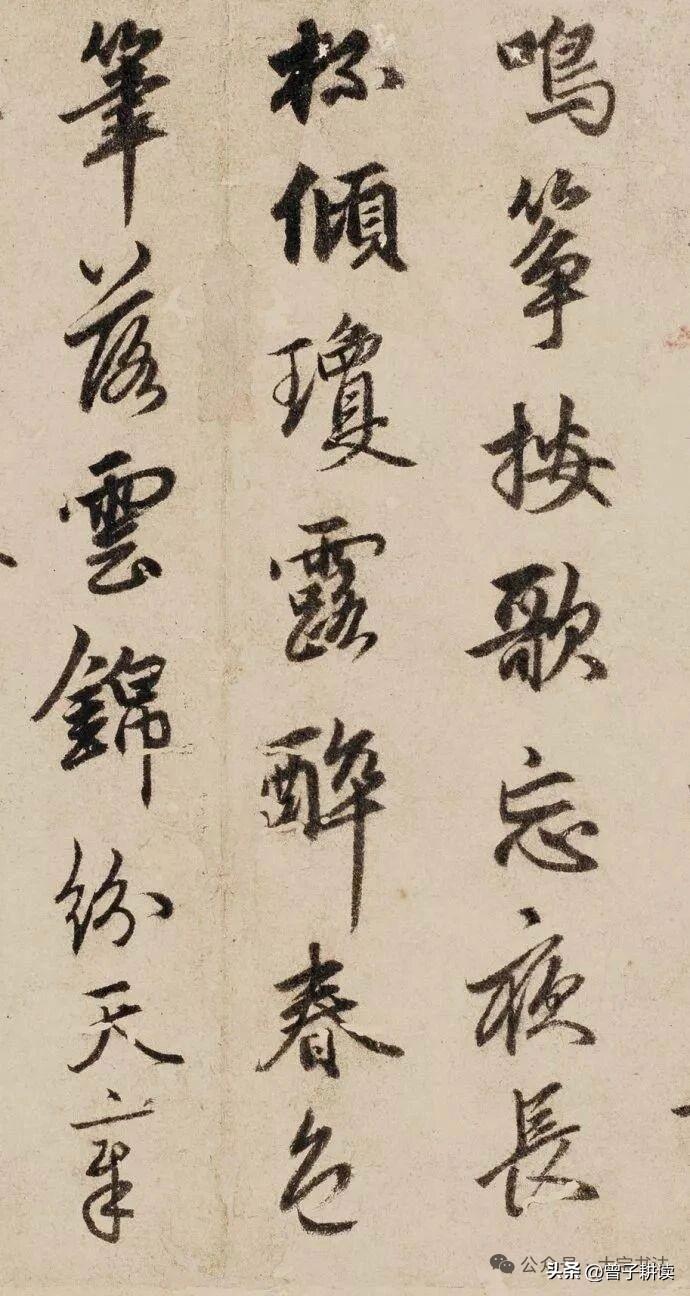 鳴箏按歌忘夜長
杯傾瓊露醉春色
筆落雲錦紛天章
公众号·大字书法
头条@曾子耕读